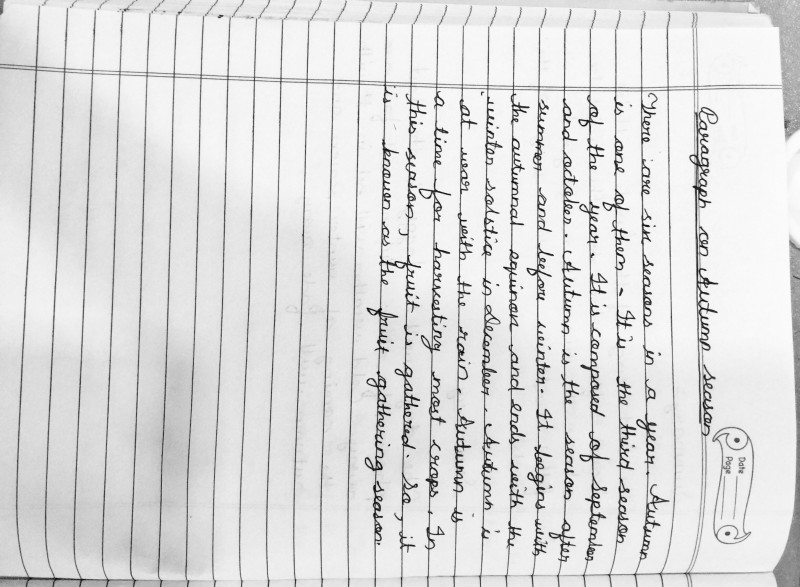 Date
Page
Paragraph on Autumn season
There are six seasons in a year. Autumn
is one of them. It is the third season
of the year. It is composed of September
and october. Autumn is the season after
summer and before winter. It begins with
the autumnal equinox and ends with the
winter solstice in December. Autumn is
at war with the rain. Autumn is
a time for harvesting most crops. In
this season, fruit is gathered. So, it
is known as the fruit gathering season.